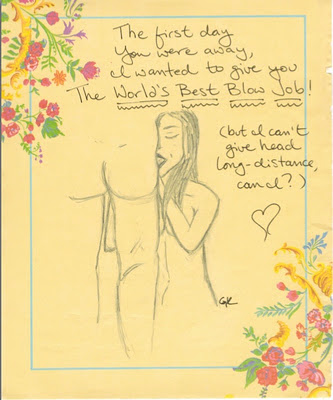 The first day
You were away,
I wanted to give you
The World's Best Blow Job!
(but I can't
give head
long-distance,
can I?)
GK